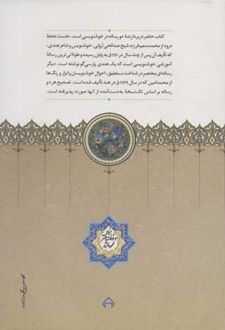 کتاب حاضر دربردارندهٔ دو رساله در خوشنویسی است. نخست تحفهٔ
درود از محمد نعیم فرزند شیخ عبدالحی آروئی، خوشنویس و شاعر هندی،
که تألیف آن پس از چند سال در به پایان رسیده و طولانی‌ترین رسالهٔ
آموزشی خوشنویسی است که یک هندی پارسی‌گو نوشته است. دیگر
رساله‌ای مختصر در شناخت نستعلیق، احوال خوشنویسان و ابزار و رنگ‌ها
از محمد امین که در سال در هند تألیف شده است. تصحیح هر دو
رساله بر اساس تک‌نسخهٔ به‌دست‌آمده از آنها صورت پذیرفته است.